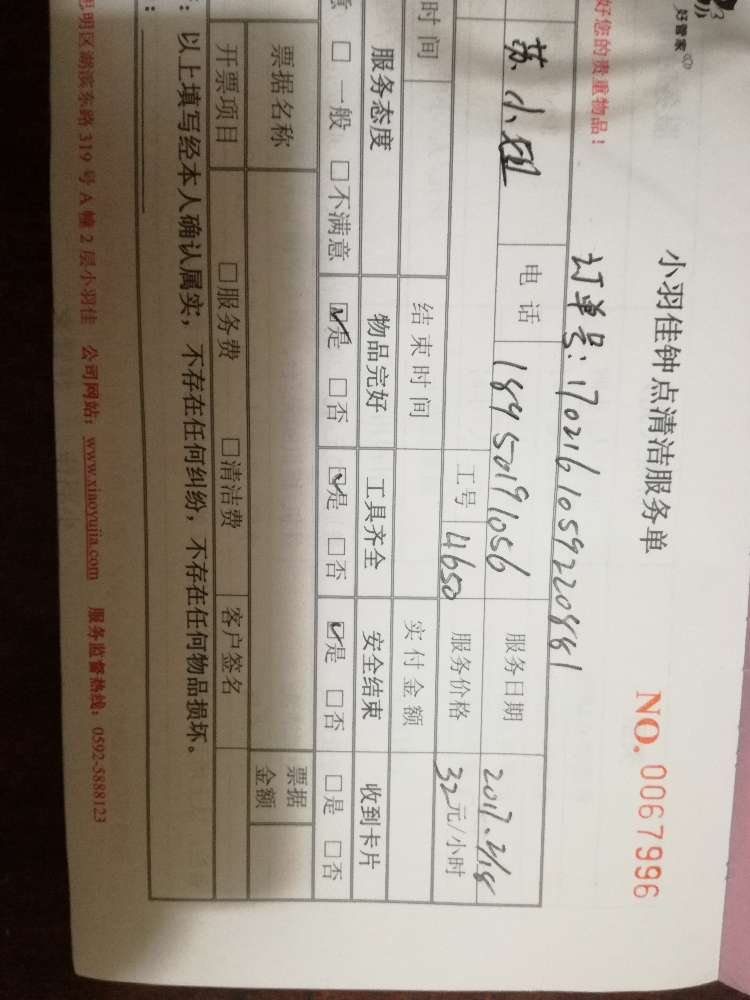 好管家
小羽佳钟点清洁服务单
NO. 0067996
好您的贵重物品！
订单号：170216105920881
苏小姐 电话 18950191056 服务日期 2017.2/18
工号 4650 服务价格 32元/小时
时间 结束时间 实付金额
服务态度 物品完好 工具齐全 安全结束 收到卡片
意 □一般 □不满意 ☑是 □否 ☑是 □否 ☑是 □否 □是 □否
票据名称 票据金额
开票项目 □服务费 □清洁费 客户签名
：以上填写经本人确认属实，不存在任何纠纷，不存在任何物品损坏。
：
思明区湖滨东路319号A幢2层小羽佳 公司网站：www.xiaoyujia.com 服务监督热线：0592-5888123